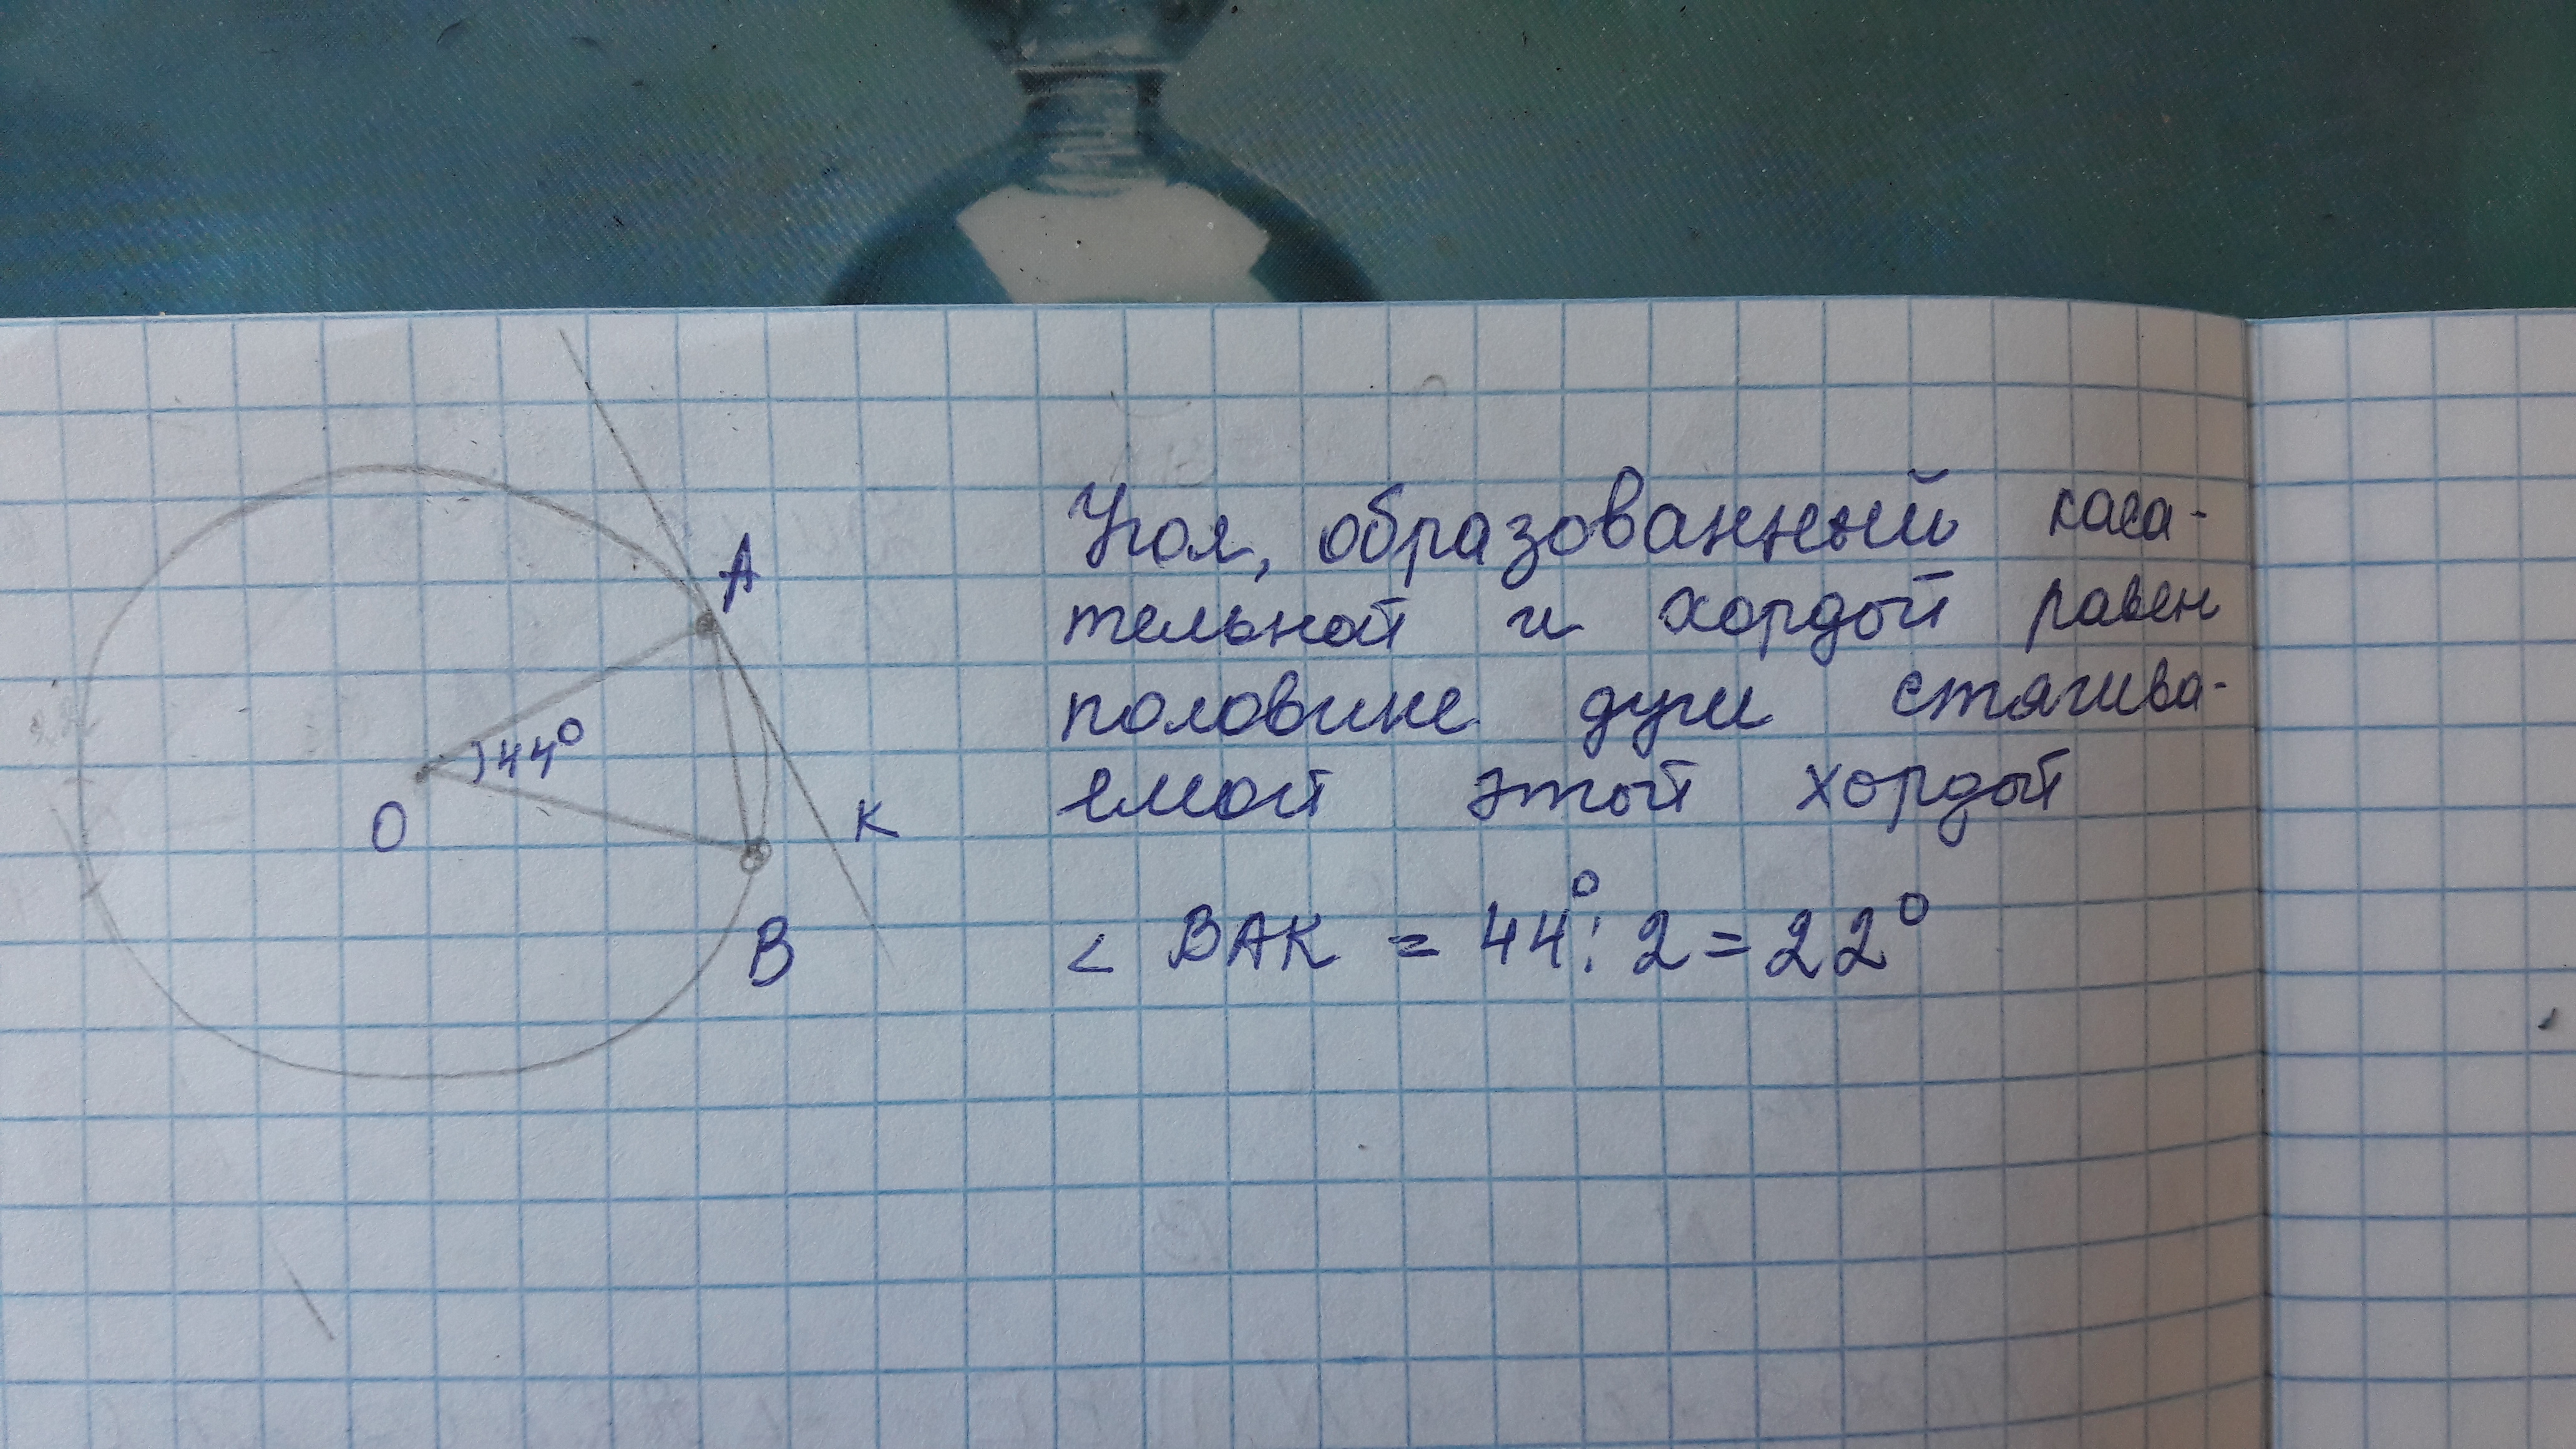 A
)44°
O
К
B
Угол, образованный каса-
тельной и хордой равен
половине дуги стягива-
емой этой хордой
< BAK = 44° : 2 = 22°